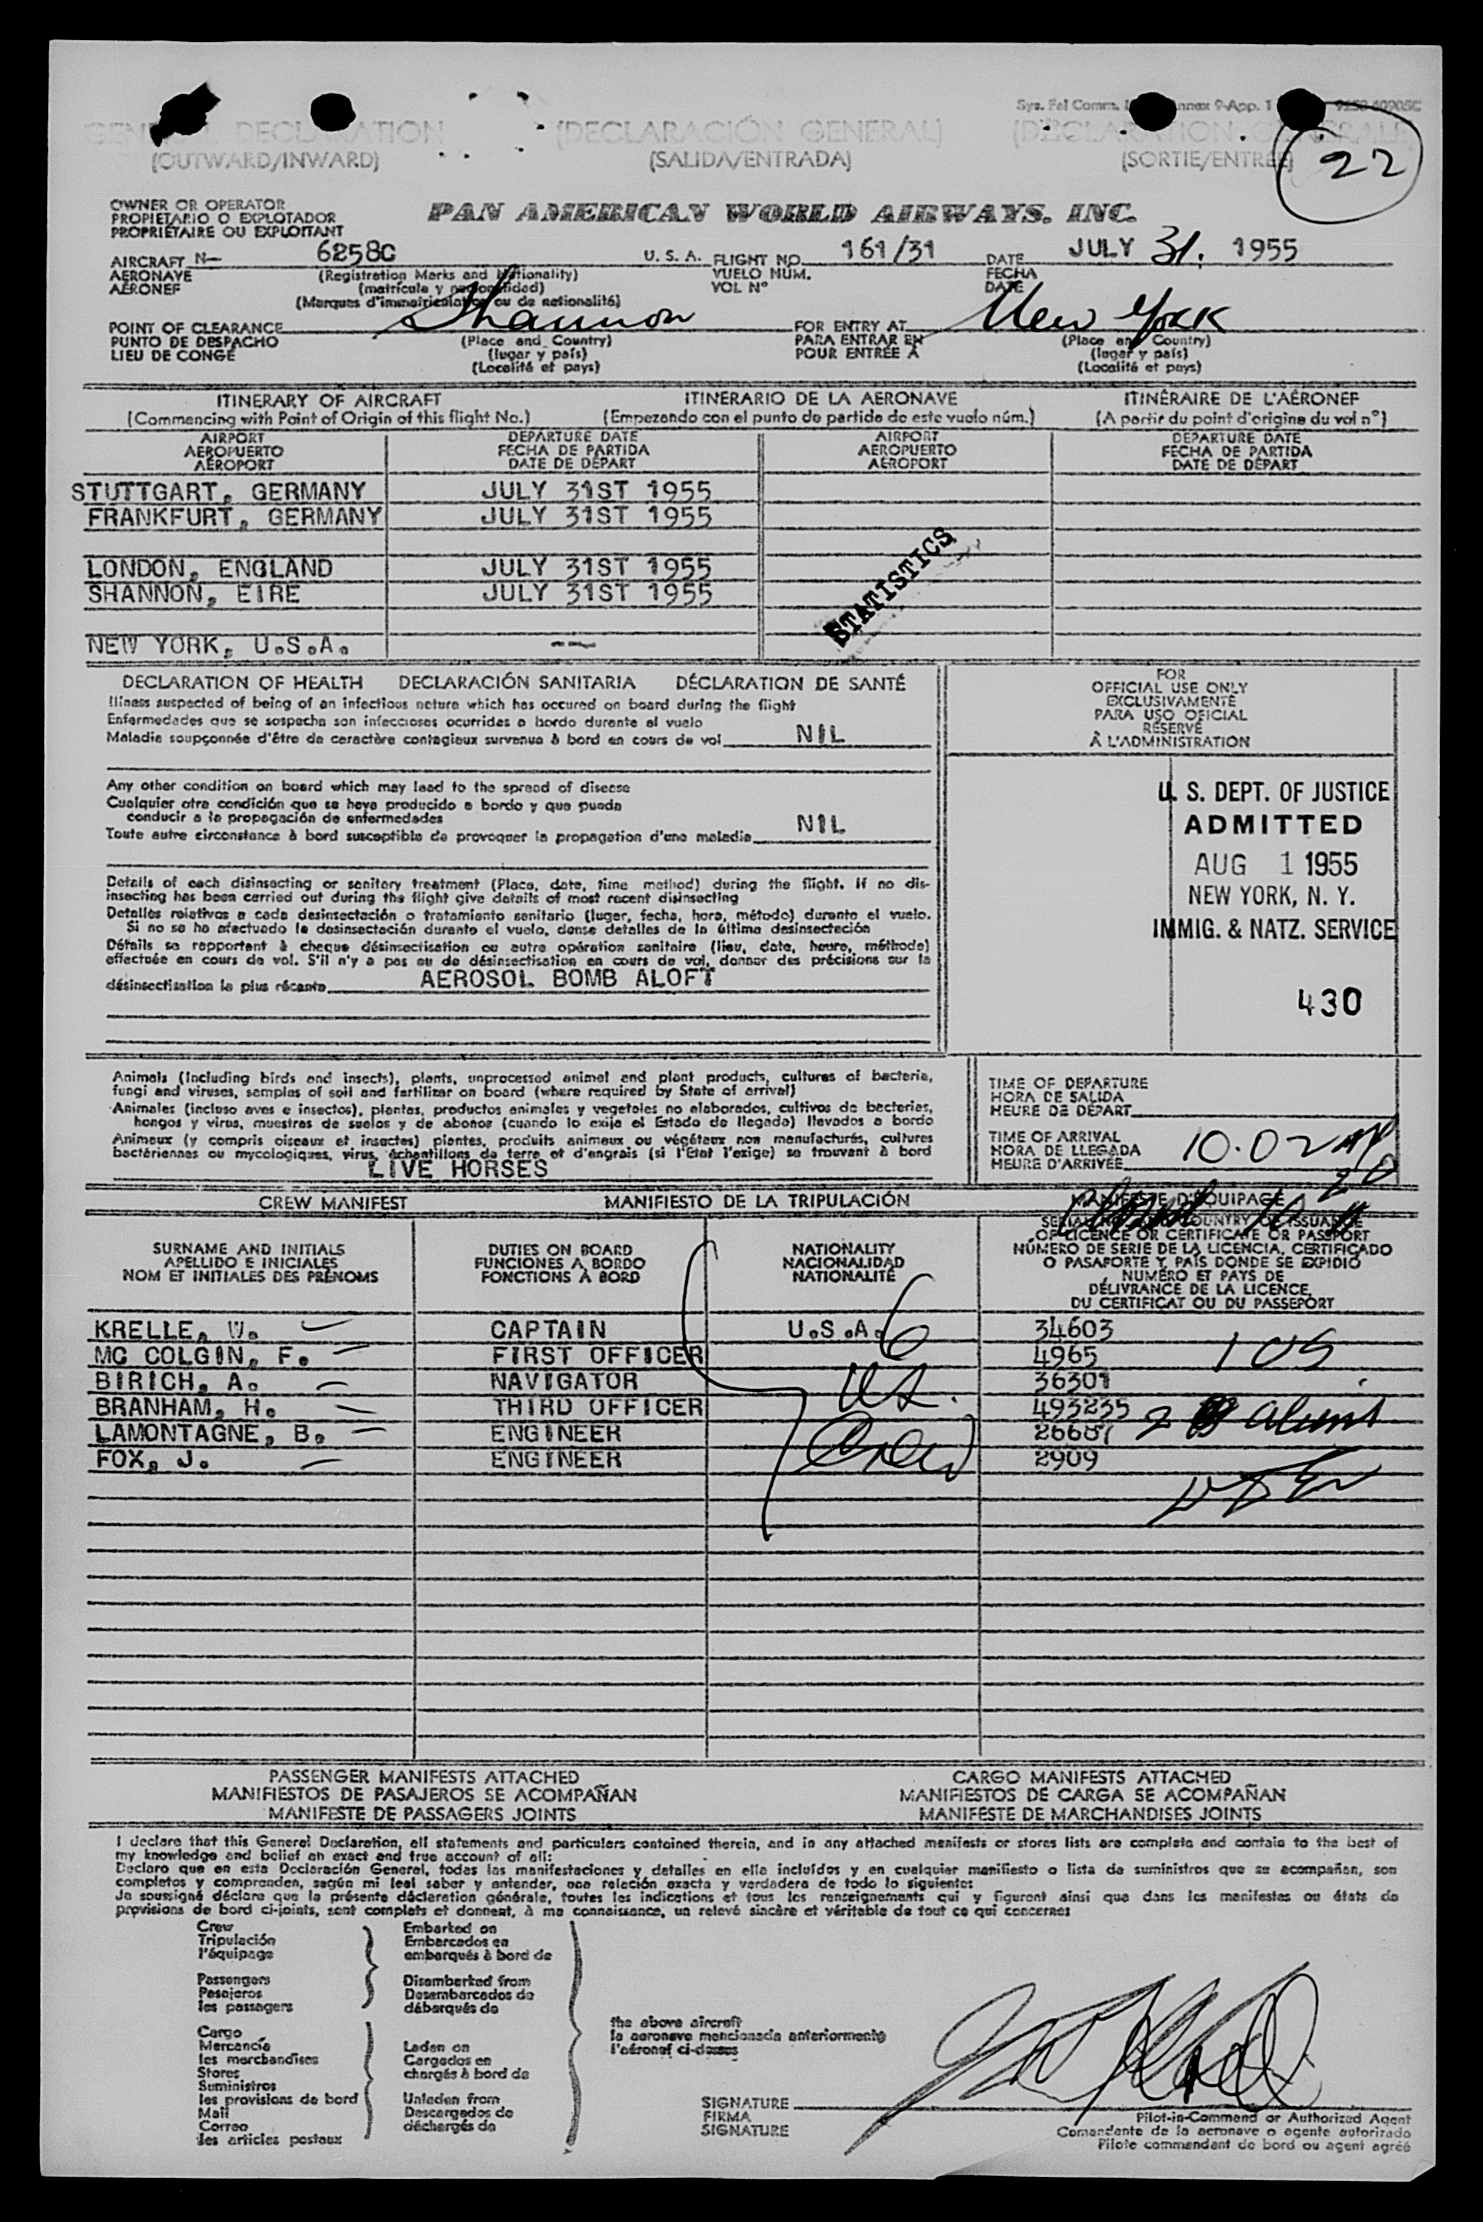 Sys. Fel Comm. Annex 9-App. 1
GENERAL DECLARATION (DECLARACIÓN GENERAL) (DÉCLARATION GÉNÉRALE)
(OUTWARD/INWARD) (SALIDA/ENTRADA) (SORTIE/ENTRÉE)
22
OWNER OR OPERATOR
PROPIETARIO O EXPLOTADOR
PROPRIÉTAIRE OU EXPLOITANT
PAN AMERICAN WORLD AIRWAYS, INC.
AIRCRAFT N- 6258C U. S. A. FLIGHT NO. 161/31 DATE JULY 31, 1955
AERONAVE (Registration Marks and Nationality) VUELO NUM. FECHA
AÉRONEF (matrícula y nacionalidad) VOL N° DATE
(Marques d'immatriculation ou de nationalité)
POINT OF CLEARANCE Shannon FOR ENTRY AT New York
PUNTO DE DESPACHO (Place and Country) PARA ENTRAR EN (Place and Country)
LIEU DE CONGÉ (lugar y país) POUR ENTRÉE À (lugar y país)
(Localité et pays) (Localité et pays)
ITINERARY OF AIRCRAFT ITINERARIO DE LA AERONAVE ITINÉRAIRE DE L'AÉRONEF
(Commencing with Point of Origin of this flight No.) (Empezando con el punto de partida de este vuelo núm.) (A partir du point d'origine du vol n°)
AIRPORT DEPARTURE DATE AIRPORT DEPARTURE DATE
AEROPUERTO FECHA DE PARTIDA AEROPUERTO FECHA DE PARTIDA
AÉROPORT DATE DE DÉPART AÉROPORT DATE DE DÉPART
STUTTGART, GERMANY JULY 31ST 1955
FRANKFURT, GERMANY JULY 31ST 1955
LONDON, ENGLAND JULY 31ST 1955
SHANNON, EIRE JULY 31ST 1955
STATISTICS
NEW YORK, U.S.A. ---
DECLARATION OF HEALTH DECLARACIÓN SANITARIA DÉCLARATION DE SANTÉ
Illness suspected of being of an infectious nature which has occured on board during the flight
Enfermedades que se sospecha son infecciosas ocurridas a bordo durante el vuelo
Maladie soupçonnée d'être de caractère contagieux survenue à bord en cours de vol NIL
Any other condition on board which may lead to the spread of disease
Cualquier otra condición que se haya producido a bordo y que pueda
conducir a la propagación de enfermedades
Toute autre circonstance à bord susceptible de provoquer la propagation d'une maladie NIL
Details of each disinsecting or sanitary treatment (Place, date, time method) during the flight. If no dis-
insecting has been carried out during the flight give details of most recent disinsecting
Detalles relativos a cada desinsectación o tratamiento sanitario (lugar, fecha, hora, método) durante el vuelo.
Si no se ha efectuado la desinsectación durante el vuelo, dense detalles de la última desinsectación
Détails se rapportant à cheque désinsectisation ou autre opération sanitaire (lieu, date, heure, méthode)
effectuée en cours de vol. S'il n'y a pas eu de désinsectisation en cours de vol, donner des précisions sur la
désinsectisation la plus récente AEROSOL BOMB ALOFT
FOR
OFFICIAL USE ONLY
EXCLUSIVAMENTE
PARA USO OFICIAL
RÉSERVÉ
À L'ADMINISTRATION
U. S. DEPT. OF JUSTICE
ADMITTED
AUG 1 1955
NEW YORK, N. Y.
IMMIG. & NATZ. SERVICE
430
Animals (Including birds and insects), plants, unprocessed animal and plant products, cultures of bacteria,
fungi and viruses, samples of soil and fertilizer on board (where required by State of arrival)
Animales (incluso aves e insectos), plantas, productos animales y vegetales no elaborados, cultivos de bacterias,
hongos y virus, muestras de suelos y de abonos (cuando lo exija el Estado de llegada) llevados a bordo
Animaux (y compris oiseaux et insectes) plantes, produits animaux ou végétaux non manufacturés, cultures
bactériennes ou mycologiques, virus, échantillons de terre et d'engrais (si l'État l'exige) se trouvant à bord
LIVE HORSES
TIME OF DEPARTURE
HORA DE SALIDA
HEURE DE DÉPART
TIME OF ARRIVAL
HORA DE LLEGADA 10.02
HEURE D'ARRIVÉE
CREW MANIFEST MANIFIESTO DE LA TRIPULACIÓN MANIFESTE D'ÉQUIPAGE
SURNAME AND INITIALS
APELLIDO E INICIALES
NOM ET INITIALES DES PRÉNOMS
DUTIES ON BOARD
FUNCIONES A BORDO
FONCTIONS À BORD
NATIONALITY
NACIONALIDAD
NATIONALITÉ
SERIAL COUNTRY OF ISSUANCE
OF LICENCE OR CERTIFICATE OR PASSPORT
NÚMERO DE SERIE DE LA LICENCIA, CERTIFICADO
O PASAPORTE Y PAÍS DONDE SE EXPIDIÓ
NUMÉRO ET PAYS DE
DÉLIVRANCE DE LA LICENCE,
DU CERTIFICAT OU DU PASSEPORT
KRELLE, W. CAPTAIN U.S.A. 6 34603
MC COLGIN, F. FIRST OFFICER 4965 105
BIRICH, A. NAVIGATOR US. 36301
BRANHAM, H. THIRD OFFICER 493235 2 aliens
LAMONTAGNE, B. ENGINEER Crew 26687
FOX, J. ENGINEER 2909
PASSENGER MANIFESTS ATTACHED CARGO MANIFESTS ATTACHED
MANIFIESTOS DE PASAJEROS SE ACOMPAÑAN MANIFIESTOS DE CARGA SE ACOMPAÑAN
MANIFESTE DE PASSAGERS JOINTS MANIFESTE DE MARCHANDISES JOINTS
I declare that this General Declaration, all statements and particulars contained therein, and in any attached manifests or stores lists are complete and contain to the best of
my knowledge and belief an exact and true account of all:
Declaro que en esta Declaración General, todas las manifestaciones y detalles en ella incluídos y en cualquier manifiesto o lista de suministros que se acompañan, son
completos y comprenden, según mi leal saber y entender, una relación exacta y verdadera de todo lo siguiente:
Je soussigné déclare que la présente déclaration générale, toutes les indications et tous les renseignements qui y figurent ainsi que dans les manifestes ou états de
provisions de bord ci-joints, sont complets et donnent, à ma connaissance, un relevé sincère et véritable de tout ce qui concerne:
Crew Embarked on
Tripulación Embarcados en
l'équipage embarqués à bord de
Passengers Disembarked from
Pasajeros Desembarcados de
les passagers débarqués de
the above aircraft
la aeronave mencionada anteriormente
l'aéronef ci-dessus
Cargo
Mercancía Laden on
les marchandises Cargados en
Stores chargés à bord de
Suministros
les provisions de bord Unladen from
Mail Descargados de
Correo déchargés de
les articles postaux
SIGNATURE
FIRMA
SIGNATURE
Pilot-in-Command or Authorized Agent
Comandante de la aeronave o agente autorizado
Pilote commandant de bord ou agent agréé